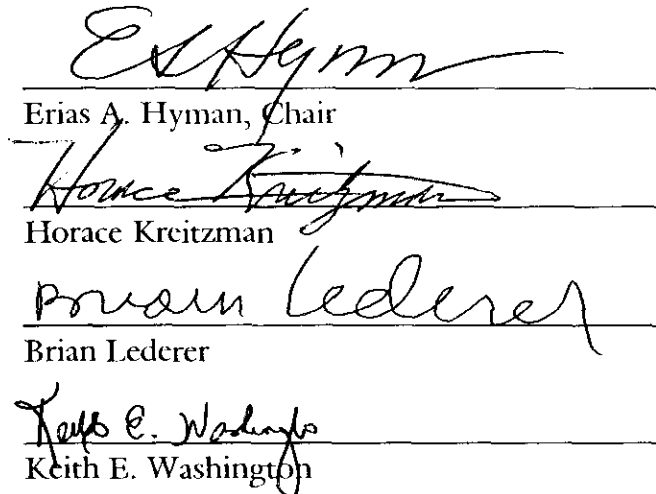 EAHyman
Erias A. Hyman, Chair
Horace Kreitzman
Horace Kreitzman
Brian Lederer
Brian Lederer
Keith E. Washington
Keith E. Washington